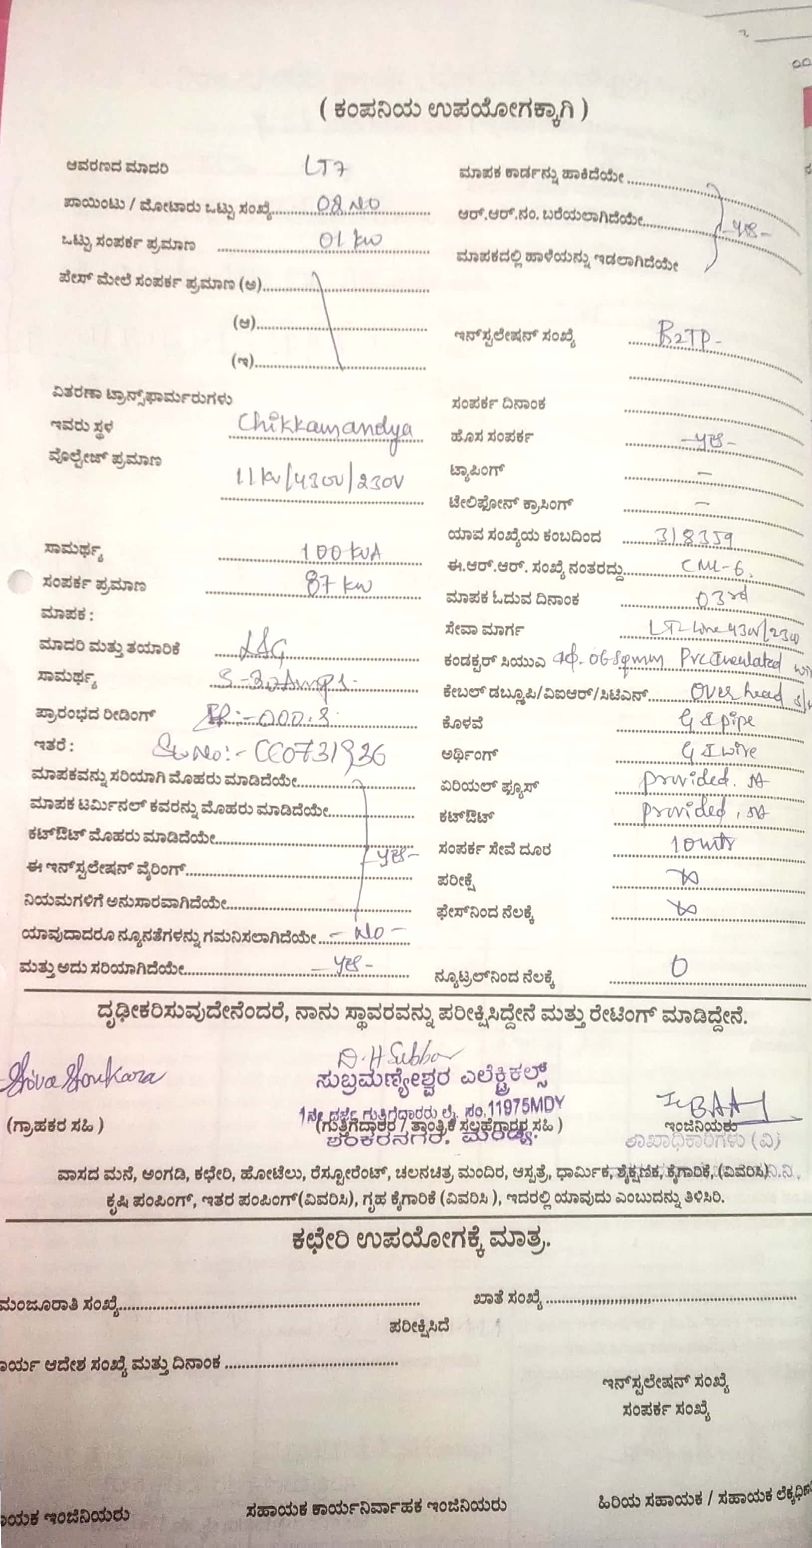 ( ಕಂಪನಿಯ ಉಪಯೋಗಕ್ಕಾಗಿ )
ಆವರಣದ ಮಾದರಿ LT7
ಪಾಯಿಂಟು / ಮೋಟಾರು ಒಟ್ಟು ಸಂಖ್ಯೆ 08 No
ಒಟ್ಟು ಸಂಪರ್ಕ ಪ್ರಮಾಣ 01 kw
ಪೇಸ್ ಮೇಲೆ ಸಂಪರ್ಕ ಪ್ರಮಾಣ (ಅ)
(ಆ)
(ಇ)
ವಿತರಣಾ ಟ್ರಾನ್ಸ್‌ಫಾರ್ಮರುಗಳು
ಇವರು ಸ್ಥಳ Chikkamandya
ವೋಲ್ಟೇಜ್ ಪ್ರಮಾಣ
11kv/430v/230V
ಸಾಮರ್ಥ್ಯ 100 kVA
ಸಂಪರ್ಕ ಪ್ರಮಾಣ 87 kw
ಮಾಪಕ :
ಮಾದರಿ ಮತ್ತು ತಯಾರಿಕೆ L&G
ಸಾಮರ್ಥ್ಯ 5-30Amps
ಪ್ರಾರಂಭದ ರೀಡಿಂಗ್ :-000.3
ಇತರೆ : SL No:- CC0731936
ಮಾಪಕವನ್ನು ಸರಿಯಾಗಿ ಮೊಹರು ಮಾಡಿದೆಯೇ
ಮಾಪಕ ಟರ್ಮಿನಲ್ ಕವರನ್ನು ಮೊಹರು ಮಾಡಿದೆಯೇ
ಕಟ್‌ಔಟ್ ಮೊಹರು ಮಾಡಿದೆಯೇ
ಈ ಇನ್‌ಸ್ಟಲೇಷನ್ ವೈರಿಂಗ್ -yes-
ನಿಯಮಗಳಿಗೆ ಅನುಸಾರವಾಗಿದೆಯೇ
ಯಾವುದಾದರೂ ನ್ಯೂನತೆಗಳನ್ನು ಗಮನಿಸಲಾಗಿದೆಯೇ -No-
ಮತ್ತು ಅದು ಸರಿಯಾಗಿದೆಯೇ -yes-
ಮಾಪಕ ಕಾರ್ಡನ್ನು ಹಾಕಿದೆಯೇ
ಆರ್.ಆರ್.ನಂ. ಬರೆಯಲಾಗಿದೆಯೇ -yes-
ಮಾಪಕದಲ್ಲಿ ಹಾಳೆಯನ್ನು ಇಡಲಾಗಿದೆಯೇ
ಇನ್‌ಸ್ಟಲೇಷನ್ ಸಂಖ್ಯೆ B2TP-
ಸಂಪರ್ಕ ದಿನಾಂಕ
ಹೊಸ ಸಂಪರ್ಕ -yes-
ಟ್ಯಾಪಿಂಗ್ -
ಟೇಲಿಫೋನ್ ಕ್ರಾಸಿಂಗ್ -
ಯಾವ ಸಂಖ್ಯೆಯ ಕಂಬದಿಂದ 318359
ಈ.ಆರ್.ಆರ್. ಸಂಖ್ಯೆ ನಂತರದ್ದು CML-6.
ಮಾಪಕ ಓದುವ ದಿನಾಂಕ 03rd
ಸೇವಾ ಮಾರ್ಗ LT Line 430/230
ಕಂಡಕ್ಟರ್ ಸಿಯುಎ 1ϕ. 06 Sqmm Pvc Insulated
ಕೇಬಲ್ ಡಬ್ಲೂಪಿ/ವಿಐಆರ್/ಸಿಟಿಎನ್ Over head
ಕೊಳವೆ G I pipe
ಅರ್ಥಿಂಗ್ G I wire
ಏರಿಯಲ್ ಫ್ಯೂಸ್ provided.
ಕಟ್‌ಔಟ್ provided,
ಸಂಪರ್ಕ ಸೇವೆ ದೂರ 10 mtr
ಪರೀಕ್ಷೆ ∞
ಫೇಸ್‌ನಿಂದ ನೆಲಕ್ಕೆ ∞
ನ್ಯೂಟ್ರಲ್‌ನಿಂದ ನೆಲಕ್ಕೆ 0
ದೃಢೀಕರಿಸುವುದೇನೆಂದರೆ, ನಾನು ಸ್ಥಾವರವನ್ನು ಪರೀಕ್ಷಿಸಿದ್ದೇನೆ ಮತ್ತು ರೇಟಿಂಗ್ ಮಾಡಿದ್ದೇನೆ.
Shiva Shankara
D. H Subba
ಸುಬ್ರಮಣ್ಯೇಶ್ವರ ಎಲೆಕ್ಟ್ರಿಕಲ್ಸ್
1ನೇ ದರ್ಜೆ ಗುತ್ತಿಗೆದಾರರು ಲೈ. ಸಂ.11975MDY
(ಗ್ರಾಹಕರ ಸಹಿ ) (ಗುತ್ತಿಗೆದಾರಿಕರ / ತಾಂತ್ರಿಕ ಸಲಹೆಗಾರರ ಸಹಿ ) ಇಂಜಿನಿಯರು
ಶಂಕರನಗರ, ಮಂಡ್ಯ. ಶಾಖಾಧಿಕಾರಿಗಳು (ವಿ)
ವಾಸದ ಮನೆ, ಅಂಗಡಿ, ಕಛೇರಿ, ಹೋಟೆಲು, ರೆಸ್ಟೋರೆಂಟ್, ಚಲನಚಿತ್ರ ಮಂದಿರ, ಆಸ್ಪತ್ರೆ, ಧಾರ್ಮಿಕ, ಶೈಕ್ಷಣಿಕ, ಕೈಗಾರಿಕೆ, (ವಿವರಿಸಿ)
ಕೃಷಿ ಪಂಪಿಂಗ್, ಇತರ ಪಂಪಿಂಗ್(ವಿವರಿಸಿ), ಗೃಹ ಕೈಗಾರಿಕೆ (ವಿವರಿಸಿ ), ಇದರಲ್ಲಿ ಯಾವುದು ಎಂಬುದನ್ನು ತಿಳಿಸಿರಿ.
ಕಛೇರಿ ಉಪಯೋಗಕ್ಕೆ ಮಾತ್ರ.
ಮಂಜೂರಾತಿ ಸಂಖ್ಯೆ ಖಾತೆ ಸಂಖ್ಯೆ
ಪರೀಕ್ಷಿಸಿದೆ
ಾರ್ಯ ಆದೇಶ ಸಂಖ್ಯೆ ಮತ್ತು ದಿನಾಂಕ
ಇನ್‌ಸ್ಟಲೇಷನ್ ಸಂಖ್ಯೆ
ಸಂಪರ್ಕ ಸಂಖ್ಯೆ
ಾಯಕ ಇಂಜಿನಿಯರು ಸಹಾಯಕ ಕಾರ್ಯನಿರ್ವಾಹಕ ಇಂಜಿನಿಯರು ಹಿರಿಯ ಸಹಾಯಕ / ಸಹಾಯಕ